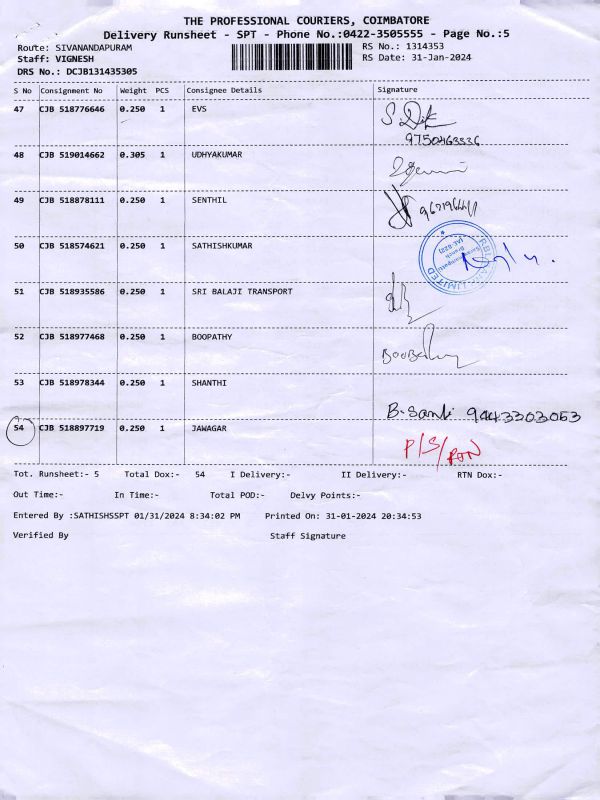 THE PROFESSIONAL COURIERS, COIMBATORE
Delivery Runsheet - SPT - Phone No.:0422-3505555 - Page No.:5
Route: SIVANANDAPURAM RS No.: 1314353
Staff: VIGNESH RS Date: 31-Jan-2024
DRS No.: DCJB131435305
S No Consignment No Weight PCS Consignee Details Signature
47 CJB 518776646 0.250 1 EVS
48 CJB 519014662 0.305 1 UDHYAKUMAR
49 CJB 518878111 0.250 1 SENTHIL
50 CJB 518574621 0.250 1 SATHISHKUMAR
51 CJB 518935586 0.250 1 SRI BALAJI TRANSPORT
52 CJB 518977468 0.250 1 BOOPATHY
53 CJB 518978344 0.250 1 SHANTHI
B. Santi 9443303053
54 CJB 518897719 0.250 1 JAWAGAR P/S/RTN
Tot. Runsheet:- 5 Total Dox:- 54 I Delivery:- II Delivery:- RTN Dox:-
Out Time:- In Time:- Total POD:- Delvy Points:-
Entered By :SATHISHSSPT 01/31/2024 8:34:02 PM Printed On: 31-01-2024 20:34:53
Verified By Staff Signature